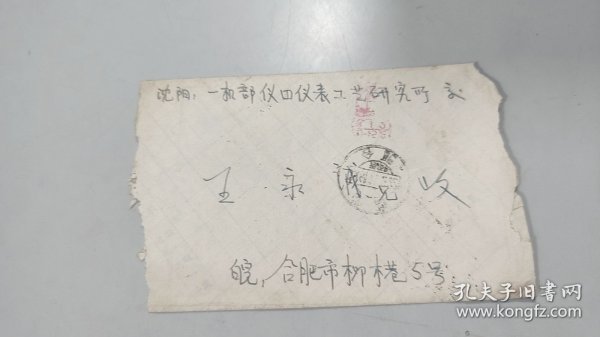 沈阳：一机部仪口仪表工艺研究所 交
王永诚兄 收
皖，合肥市柳木巷5号
孔夫子旧书网
www.kongfz.com